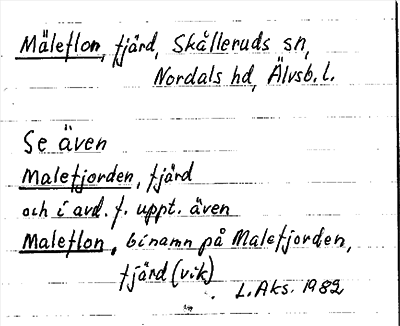 Mäleflon, fjärd, Skålleruds sn,
Nordals hd, Älvsb. l.
Se även
Malefjorden, fjärd
och i avd. f. uppt. även
Maleflon, binamn på Malefjorden,
fjärd (vik)
L. Aks. 1982